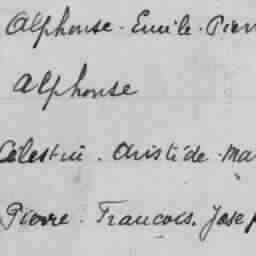 Alphonse. Emile. Pierr
Alphonse
Célestin. Aristide. Ma
Pierre. Francois. Josep